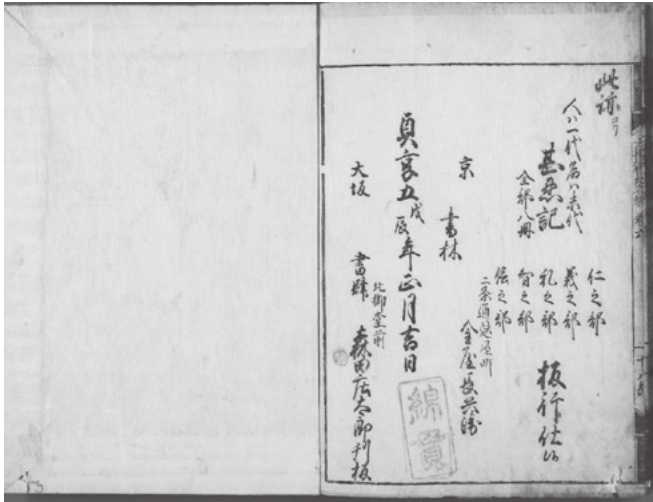 此跡ヨリ
人ハ一代名ハ末代
甚忍記
全部八冊
仁之部
義之部
礼之部
智之部
信之部
板行仕候
京
二条通麩屋町
金屋長兵衛
書林
貞享五戊辰年正月吉日
大坂
北御堂前
書肆 森田庄太郎刊板
綿貫